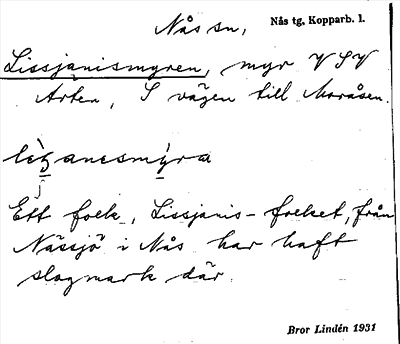 Nås sn, Nås tg, Kopparb. l.
Lissjanismyren, myr V S V
Arten, S vägen till Moråsen.
Ett folk, Lissjanis-folket, från
Nässjö i Nås har haft
slogmark där.
Bror Lindén 1931